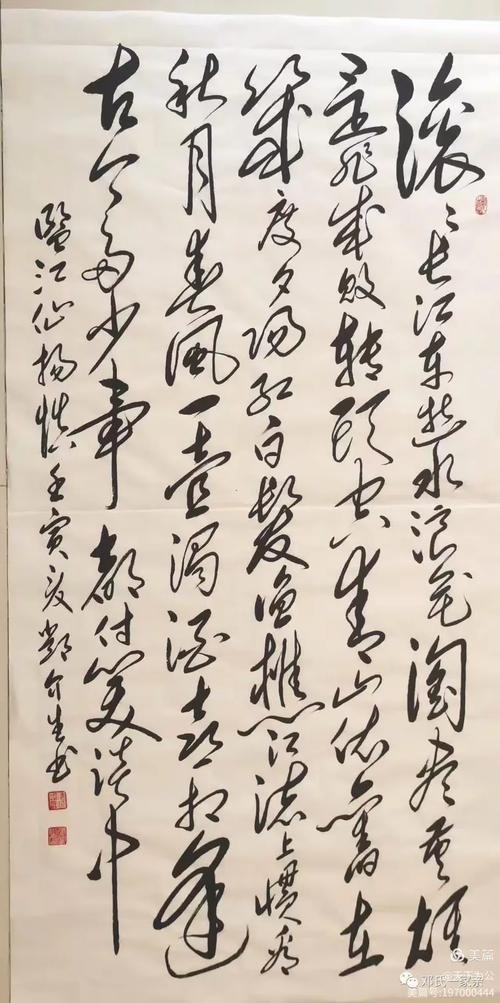 滚滚长江东逝水浪花淘尽英雄
是非成败转头空青山依舊在
幾度夕阳红白髮渔樵江渚上惯看
秋月春風一壶濁酒喜相逢
古今多少事都付笑谈中
临江仙杨慎壬寅夏鄧介生书
美篇
@天下为公
邓氏一家亲
美篇号:197000444